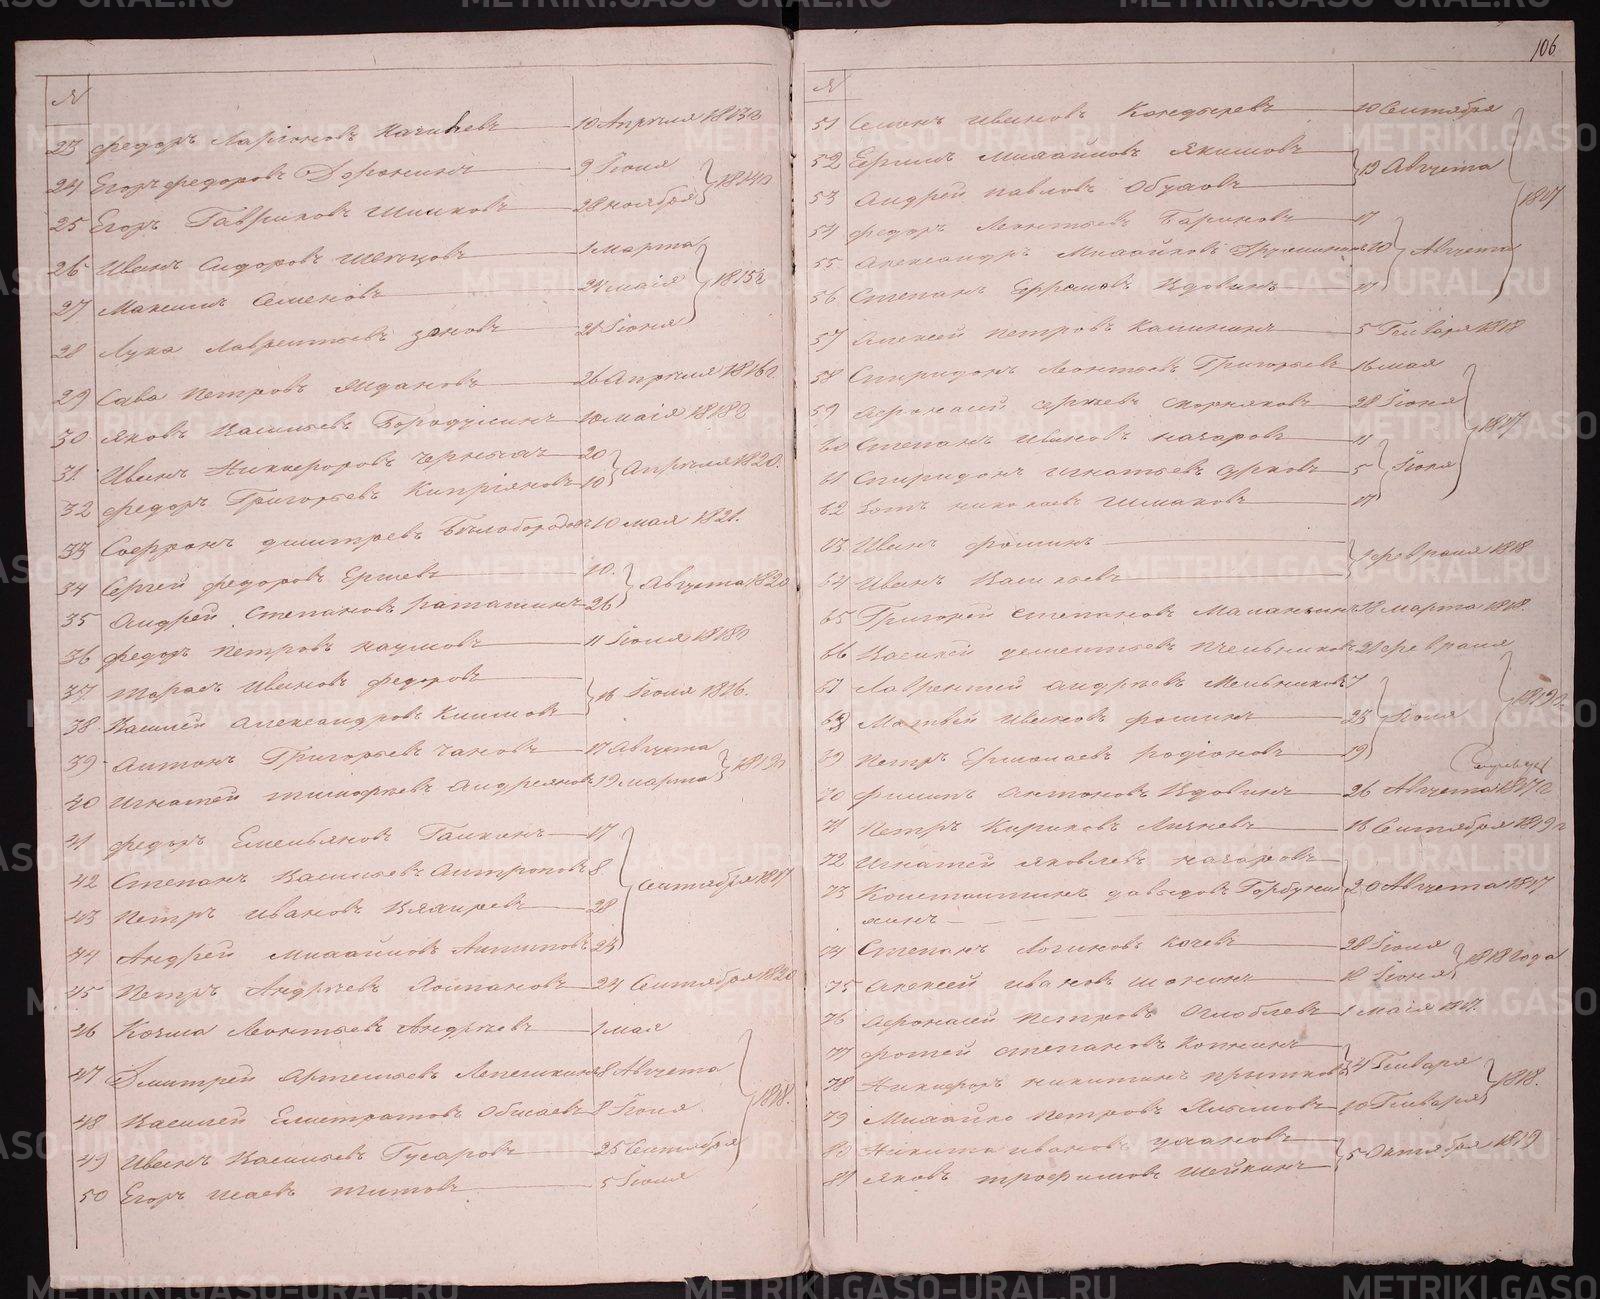 106
№
23 Федоръ Ларіоновъ 10 Апрѣля 1813г
24 Егоръ Федоровъ Доронинъ 9 Іюня
1814г
25 Егоръ Гавриловъ Шишковъ 28 ноября
26 Иванъ Сидоровъ Шевцовъ 1 Марта
27 Максимъ Семеновъ 24 маія 1815г
28 Лука Лаврентьевъ 21 Іюня
29 Сава Петровъ Ждановъ 26 Апрѣля 1816г.
30 Яковъ Васильевъ Бородулинъ 10 маія 1818г
31 Иванъ Никифоровъ Черныхъ 20
Апрѣля 1820.
32 Федоръ Григорьевъ Кипріяновъ 10
33 Софронъ Дмитревъ Бѣлобородовъ 10 мая 1821.
34 Сергей Федоровъ Ершевъ 10.
Августа 1820
35 Андрей Степановъ 26
36 Федоръ Петровъ Наумовъ 11 Іюня 1818г
37 Тарасъ Ивановъ Федоровъ
16 Іюня 1816.
38 Василей Александровъ Климовъ
39 Антонъ Григорьевъ Чановъ 17 Августа
1819г
40 Игнатей Тимофѣевъ Андреяновъ 19 марта
41 Федоръ Емельяновъ Галкинъ 17
42 Степанъ Васильевъ Антроповъ 8
Сентября 1817
43 Петръ Ивановъ 28
44 Андрей Михайловъ Антиповъ 24
45 Петръ Андрѣевъ Колпаковъ 24 Сентября 1820
46 Козма Леонтьевъ Андрѣевъ 1 мая
47 Дмитрей Артемьевъ Лепешкинъ 8 Августа
1818.
48 Василей Елистратовъ 8 Іюня
49 Иванъ Васильевъ Гусаровъ 25 Сентября
50 Егоръ Исаевъ Титовъ 5 Іюня
№
51 Семенъ Ивановъ Кондыревъ 10 Сентября
52 Ефимъ Михайловъ Якимовъ
13 Августа
53 Андрей Павловъ Обуховъ
1817
54 Федоръ Леонтьевъ Бариновъ 17
55 Александръ Михайловъ 10 Августа
56 Степанъ Ефремовъ Вдовинъ 17
57 Алексей Петровъ Калининъ 5 Генваря 1818
58 Спиридонъ Леонтьевъ Григорьевъ 16 мая
59 Афонасей Сергѣевъ Скорняковъ 28 Іюня
1817
60 Степанъ Ивановъ Назаровъ 11
61 Спиридонъ Игнатьевъ Сурковъ 5 Іюня
62 Николаевъ Шмаковъ 17
63 Иванъ Фоминъ
1 февраля 1818
64 Иванъ Васильевъ
65 Григорей Степановъ Маланьинъ 18 марта 1818.
66 Василей Дементьевъ Пчельниковъ 21 февраля
67 Лаврентей Андрѣевъ Мельниковъ 7
1819г
68 Матвей Ивановъ Фоминъ 25 Іюня
69 Петръ Ермолаевъ Родіоновъ 19
70 Филипъ Антоновъ Вдовинъ 26 Августа 1817г
71 Петръ Кириловъ 18 Сентября 1819г
72 Игнатей Яковлевъ Назаровъ
20 Августа 1817
73 Константинъ Давыдовъ Горбуни
хинъ
74 Степанъ Логиновъ Качевъ 28 Іюня
1818 года
75 Алексей Ивановъ Шонинъ 12 Іюня
76 Афонасей Петровъ Оглоблевъ 1 маія 1817.
77 Фотей Степановъ Копнинъ
24 Генваря
78 Никифоръ Никитинъ Прытковъ
1818.
79 Михайло Петровъ 10 Генваря
80 Никита Ивановъ Улановъ
5 Октября 1819
81 Яковъ Трофимовъ Шейкинъ